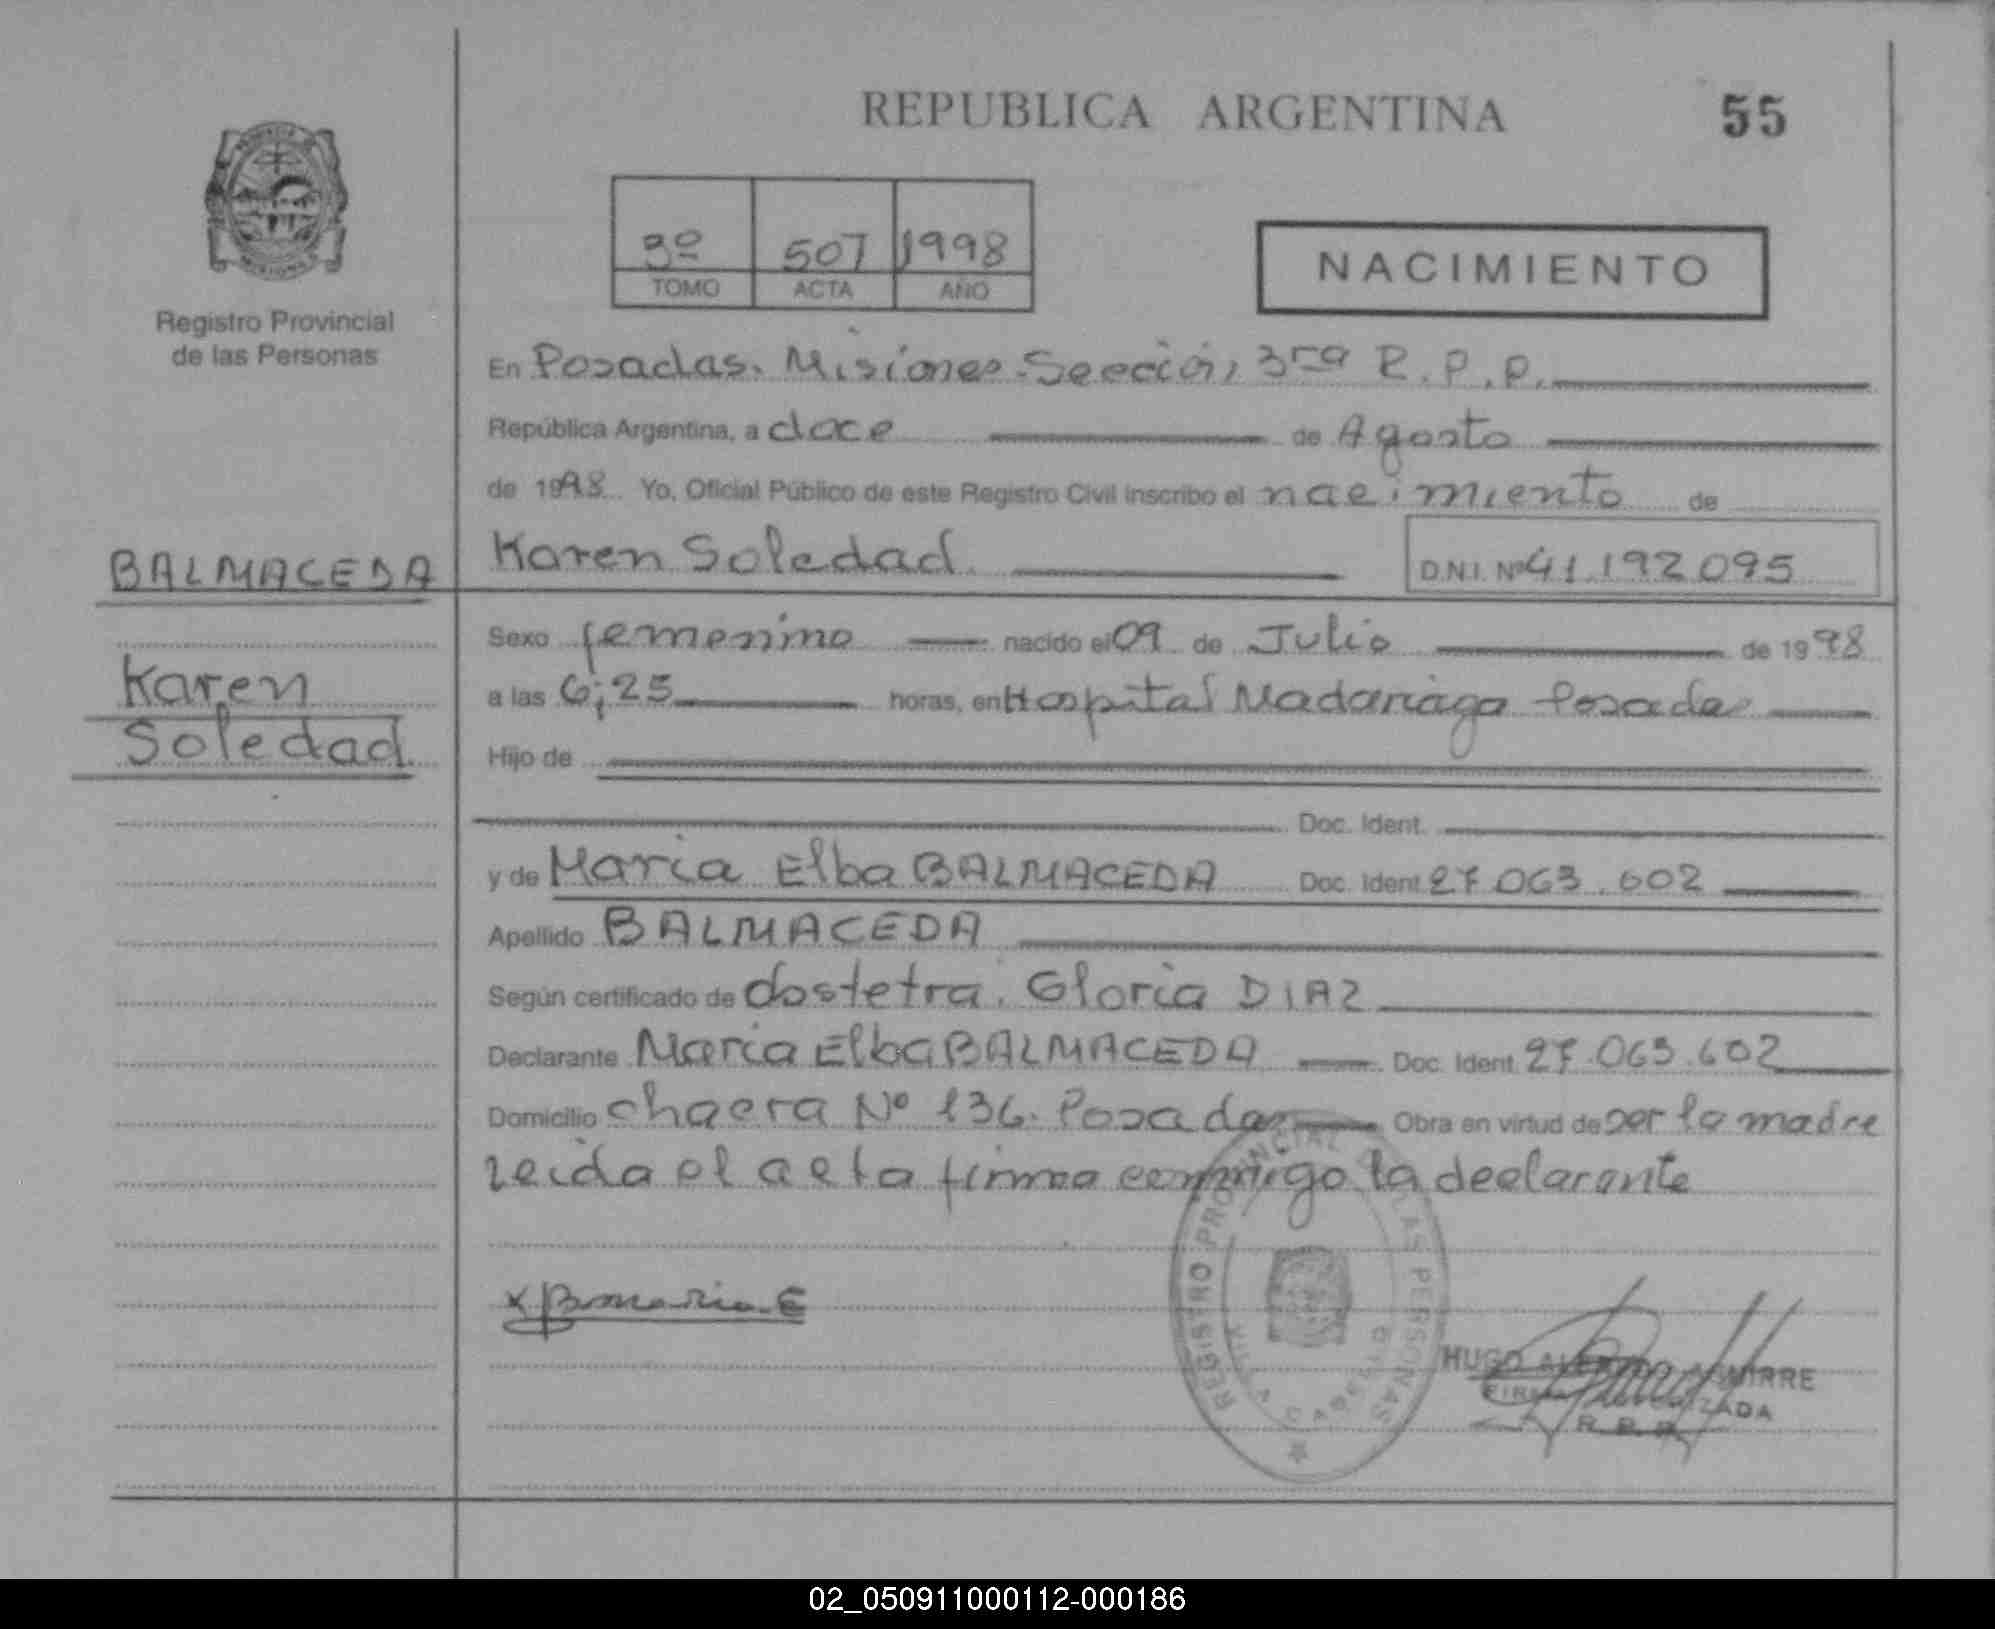 REPUBLICA ARGENTINA
55
3º 507 1998
TOMO ACTA AÑO
NACIMIENTO
Registro Provincial
de las Personas
En Posadas. Misiones. Sección 3ra R.P.P.
República Argentina, a doce de Agosto
de 1998 Yo, Oficial Público de este Registro Civil inscribo el nacimiento de
BALMACEDA
Karen Soledad
D.N.I. Nº 41.192.095
Karen
Soledad
Sexo femenino nacido el 09 de Julio de 1998
a las 6;25 horas, en Hospital Madariaga Posadas
Hijo de
Doc. Ident.
y de Maria Elba BALMACEDA Doc. Ident. 27.063.602
Apellido BALMACEDA
Según certificado de Obstetra. Gloria DIAZ
Declarante Maria Elba BALMACEDA Doc. Ident. 27.063.602
Domicilio chacra Nº 136. Posadas Obra en virtud de ser la madre
leida el acta firma conmigo la declarante
REGISTRO PROVINCIAL DE LAS PERSONAS
HUGO AGUIRRE
FIRMA AUTORIZADA
R.P.P.
02_050911000112-000186